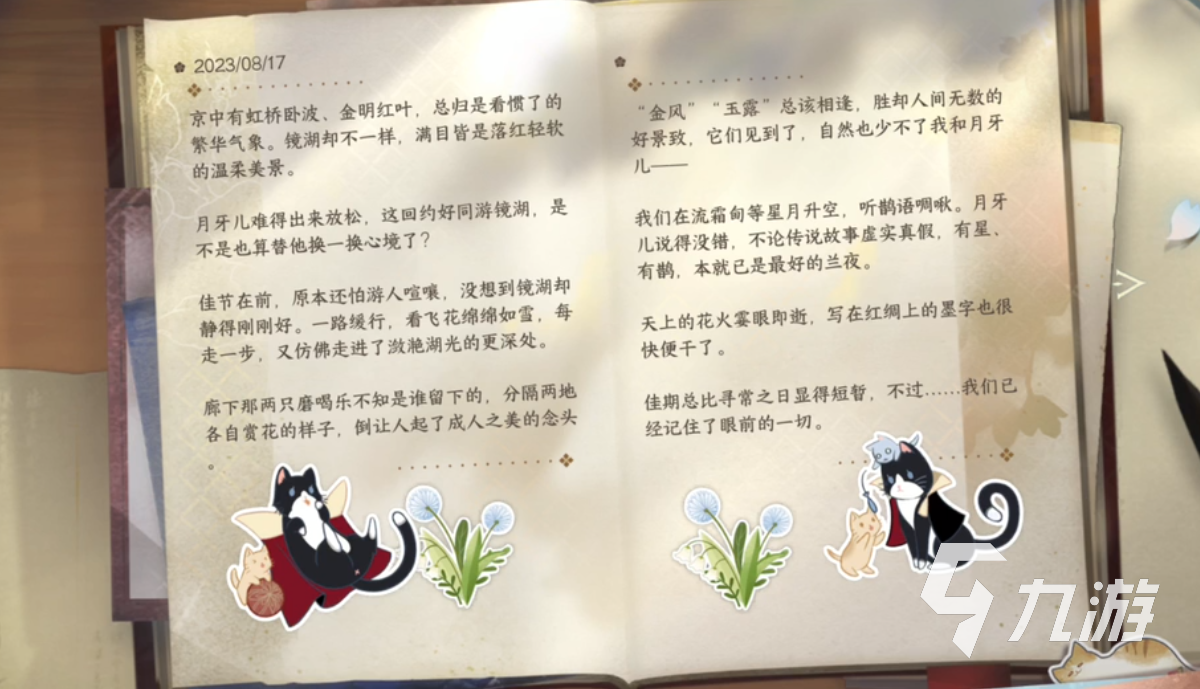 2023/08/17
京中有虹桥卧波、金明红叶，总归是看惯了的
繁华气象。镜湖却不一样，满目皆是落红轻软
的温柔美景。
月牙儿难得出来放松，这回约好同游镜湖，是
不是也算替他换一换心境了？
佳节在前，原本还怕游人喧嚷，没想到镜湖却
静得刚刚好。一路缓行，看飞花绵绵如雪，每
走一步，又仿佛走进了潋滟湖光的更深处。
廊下那两只磨喝乐不知是谁留下的，分隔两地
各自赏花的样子，倒让人起了成人之美的念头
。
“金风”“玉露”总该相逢，胜却人间无数的
好景致，它们见到了，自然也少不了我和月牙
儿——
我们在流霜甸等星月升空，听鹊语啁啾。月牙
儿说得没错，不论传说故事虚实真假，有星、
有鹊，本就已是最好的兰夜。
天上的花火霎眼即逝，写在红绸上的墨字也很
快便干了。
佳期总比寻常之日显得短暂，不过……我们已
经记住了眼前的一切。
九游